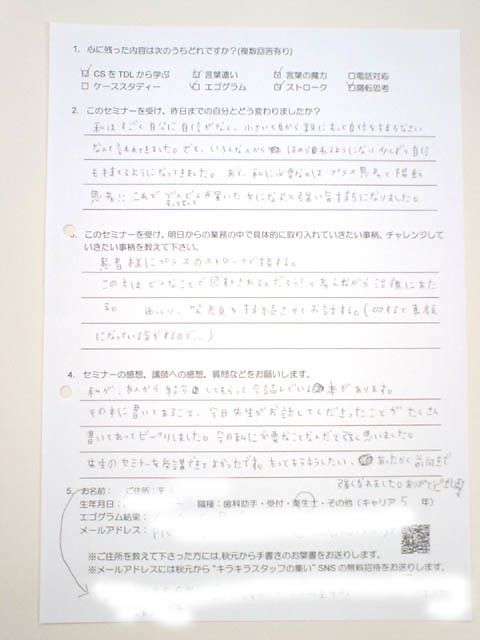 1. 心に残った内容は次のうちどれですか？(複数回答有り)
☑CSをTDLから学ぶ ☑言葉遣い ☑言葉の魔力 □電話対応
□ケーススタディー ☑エゴグラム ☑ストローク ☑陽転思考
2. このセミナーを受け、昨日までの自分とどう変わりましたか？
私はすごく自分に自信がなく、小さい頃から親にもっと自信を持ちなさい
なんて言われてきました。でも、いろんな人から ほめられるようになり 少しずつ自信
も持てるようになってきました。あと、私に必要なのは プラス思考と陽転
思考!! これで どんどん 輝いた女になると強い気持ちになりました。
3. このセミナーを受け、明日からの業務の中で具体的に取り入れていきたい事柄、チャレンジして
いきたい事柄を教えて下さい。
患者様にプラスのストロークで接する。
この方は どんなことで 感動されるんだろう？と考えながら治療にあた
る。 ゆっくり、 笑顔を 持続させてお話する。( すると真顔
になっている気がするので…)
4. セミナーの感想、講師への感想、質問などをお願いします。
私が、友人から紹介 してもらって 今読んでいる 本があります。
その本に書いてあること、今日先生がお話してくださったことが たくさん
書いてあってビックリしました。今の私に必要なことなんだと強く思いました。
先生のセミナーを受講できてよかったです。もっとキラキラしたい、 あったかく 前向きで
強くなれました。ありがとうございました
5. お名前： ご住所：〒
生年月日： 職種：歯科助手・受付・衛生士・その他 (キャリア 5 年)
エゴグラム結果：
メールアドレス：
※ご住所を教えて下さった方には、秋元から手書きのお葉書をお送りします。
※メールアドレスには秋元から“キラキラスタッフの集い”SNSの無料招待をお送りします。